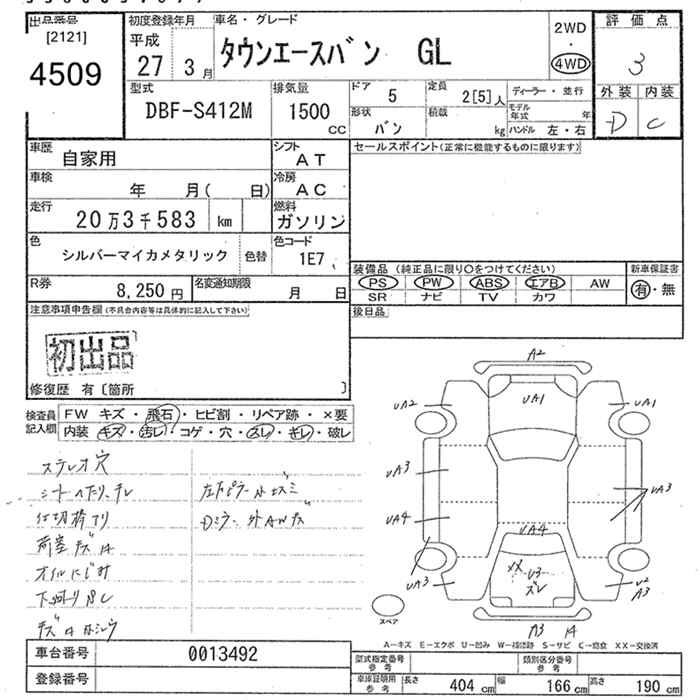 出品番号
[2121]
4509
初度登録年月
平成
27 3月
車名・グレード
タウンエースバン GL
2WD
・
4WD
評価点
3
外装 内装
D C
型式
DBF-S412M
排気量
1500
CC
ドア
5
形状
バン
定員
2[5]人
積載
kg
ディーラー・並行
モデル年式 年
ハンドル 左・右
車歴
自家用
シフト
AT
車検
年 月( 日)
冷房
AC
走行
20万3千583 km
燃料
ガソリン
色
シルバーマイカメタリック
色替
色コード
1E7
R券
8,250円
名変通知期限
月 日
セールスポイント(正常に機能するものに限ります)
装備品 (純正品に限り○をつけてください)
PS PW ABS エアB AW
SR ナビ TV カワ
新車保証書
有・無
後日品
注意事項申告欄(不具合内容等は具体的に記入して下さい)
初出品
修復歴 有〔箇所 〕
検査員記入欄
FW キズ・飛石・ヒビ割・リペア跡・×要
内装 キズ・汚レ・コゲ・穴・スレ・キレ・破レ
ステレオ穴
シートヘタリ、テレ
荷室キズ
オイルにじみ
A2
UA1
UA2
UA1
UA3
UA3
UA4
UA4
UA3
XX U3
ズレ
U2
A3
A3
スペア
A-キズ E-エクボ U-凹み W-補修跡 S-サビ C-腐食 XX-交換済
車台番号
0013492
登録番号
型式指定番号
参考
類別区分番号
参考
車庫証明用
参考
長さ 404cm 幅 166cm 高さ 190cm